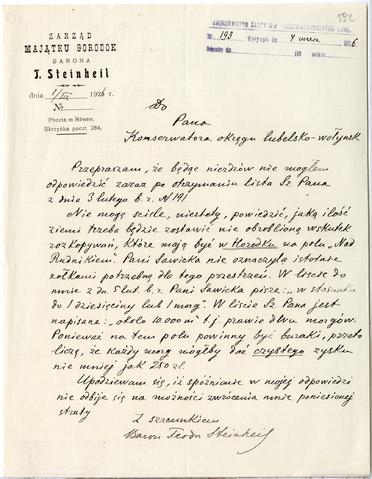 ZARZĄD
MAJĄTKU GORODOK
BARONA
T. Steinheil
dnia 1/III 1926 r.
№
Poczta m Równe,
Skrzyżka poczt. 284.
KONSERWATOR
Nr. 193 Wpłynęło dn. 4 marca 1926
Do
Pana
Konserwatora okręgu lubelsko-wołyńsk
Przepraszam, że będąc niezdrów nie mogłem
odpowiedzić zaraz po otrzymaniu lista Sz. Pana
z dnia 3 lutego b. r. N 191
Nie mogę ściśle, niestety, powiedzić, jaką ilość
ziemi trzeba będzie zostawić nie obrobloną wskutek
rozkopywań, które mają być w Horodku na polu „Nad
Rudnikiem". Pani Sawicka nie oznaczyła istotnie
kołkami potrzebną dla tego przestrzeń. W liście do
mnie z dn. 5 lut. b. r. Pani Sawicka pisze: „w stosunku
do 1 dziesięciny lub 1 morg". W liście Sz. Pana jest
napisane: „około 10.000 m² t. j. prawie dwu morgów.
Ponieważ na tem polu powinny być buraki, przeto
liczę, że każdy morg mógłby dać czystego zysku
nie mniej jak 250 zł.
Upodziewam się, iż spóźnianie w mojej odpowiedzi
nie odbije się na możności zwrócenia mnie poniesionej
straty
Z szacunkiem
Baron Teodor Steinheil